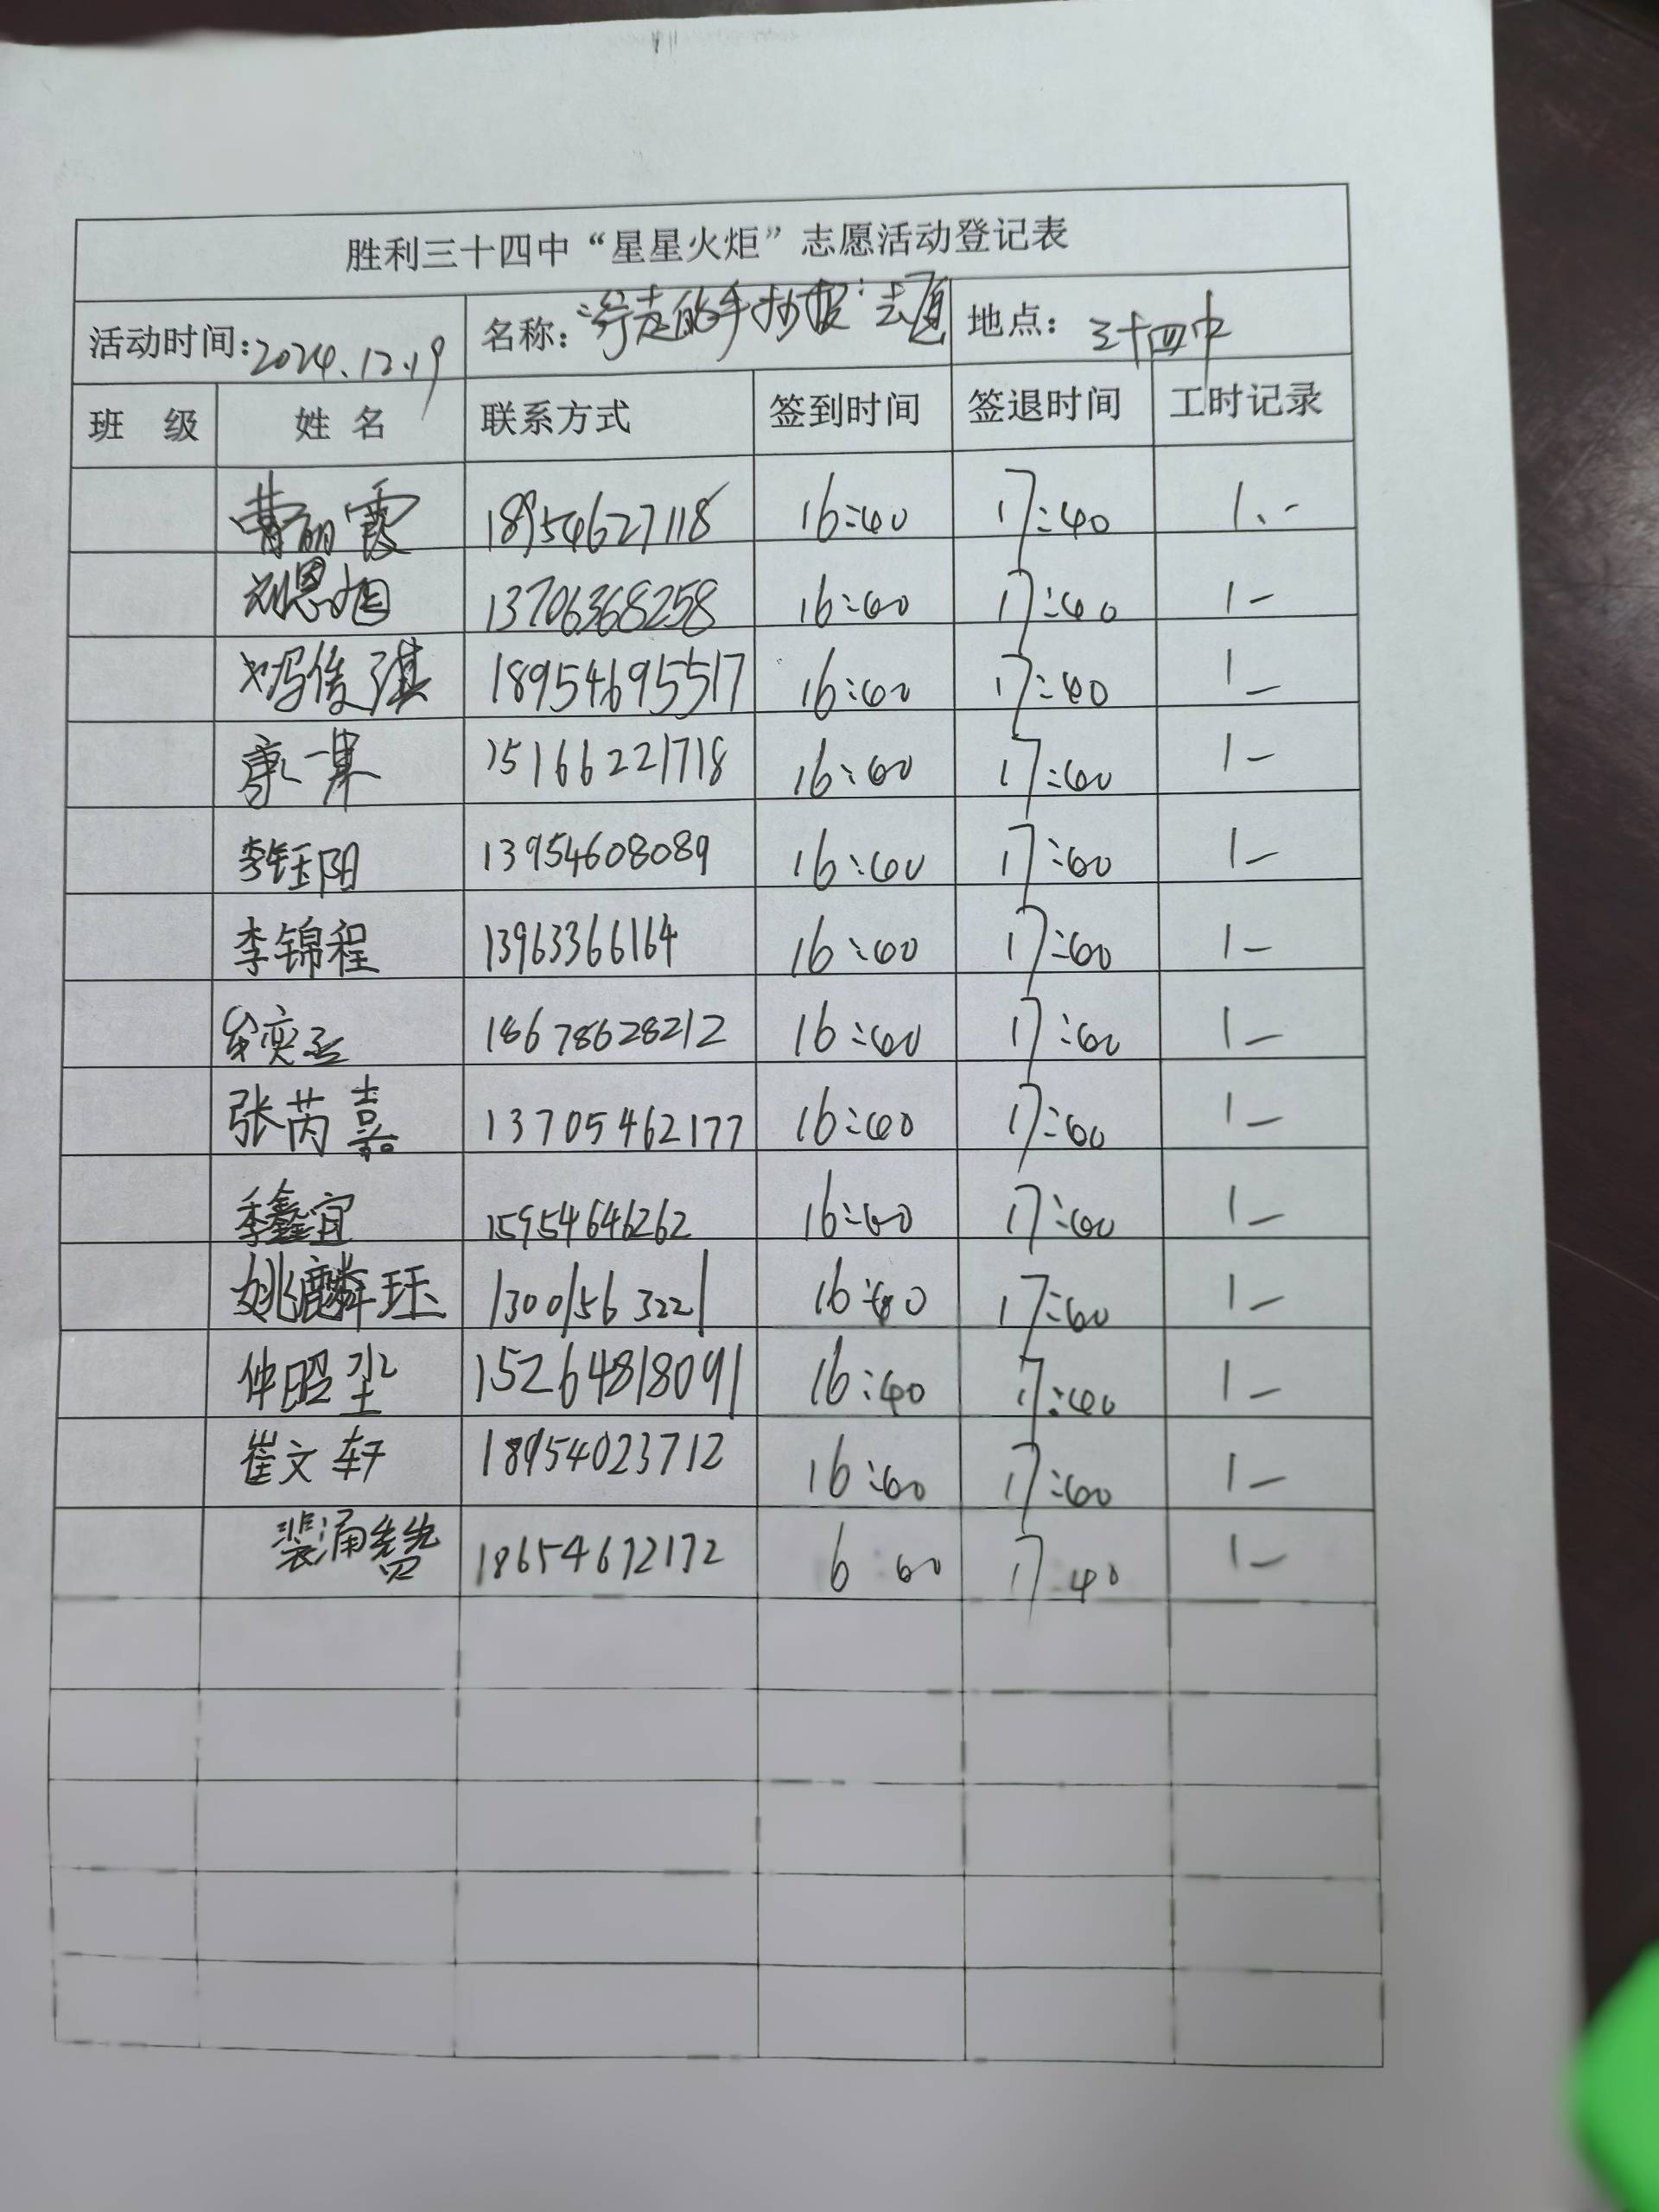 胜利三十四中“星星火炬”志愿活动登记表
活动时间:2024.12.19 名称:“行走的手抄报”志愿 地点: 三十四中
班 级 姓 名 联系方式 签到时间 签退时间 工时记录
曹丽霞 18954627118 16:40 17:40 1
刘恩旭 13706368258 16:40 17:40 1
俊琪 18954695517 16:40 17:40 1
康一果 15166221718 16:40 17:40 1
李钰阳 13954608089 16:40 17:40 1
李锦程 13963366164 16:40 17:40 1
奕 18678628212 16:40 17:40 1
张芮嘉 13705462177 16:40 17:40 1
季鑫宜 15954646262 16:40 17:40 1
姚麟珏 13001563221 16:40 17:40 1
仲昭坐 15264818091 16:40 17:40 1
崔文轩 18954023712 16:40 17:40 1
裴涌 18654672172 6:40 17:40 1